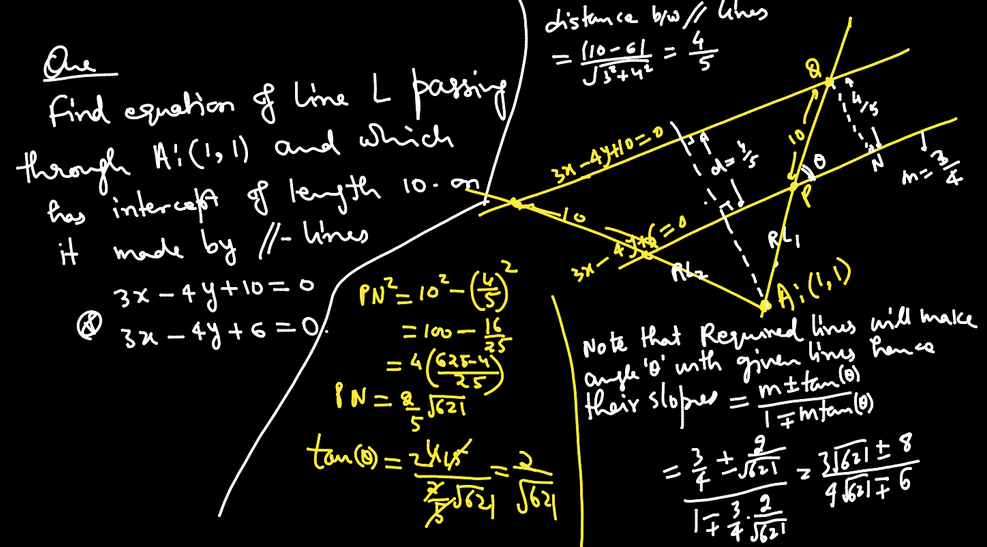 One
Find equation of line L passing
through A:(1,1) and which
has intercept of length 10 on
it made by //- lines
3x-4y+10=0
& 3x-4y+6=0.
distance b/w // lines
= |10-6| / √3²+4² = 4/5
3x-4y+10=0
d=4/5
Q
4/5
10
θ
N
m=3/4
P
10
3x-4y+6=0
RL1
RL2
A:(1,1)
PN² = 10² - (4/5)²
= 100 - 16/25
= 4(625-4 / 25)
PN = 2/5 √621
tan(θ) = 2 4/5 / 2/5 √621 = 2/√621
Note that Required lines will make
angle 'θ' with given lines hence
their slopes = m ± tan(θ) / 1 ∓ m tan(θ)
= 3/4 ± 2/√621 / 1 ∓ 3/4 . 2/√621 = 3√621 ± 8 / 4√621 ∓ 6